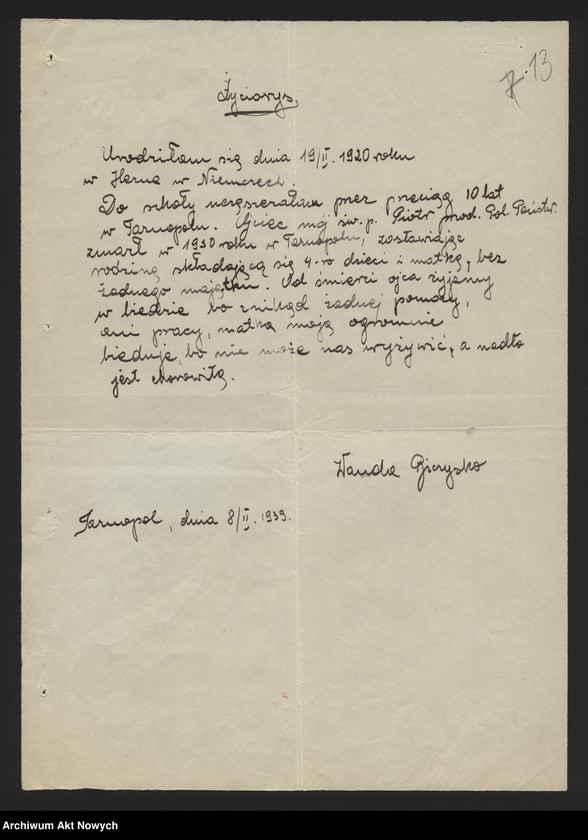 13
Życiorys.
Urodziłam się dnia 19/II. 1920 roku
w Herne w Niemczech.
Do szkoły uczęszczałam przez przeciąg 10 lat
w Tarnopolu. Ojciec mój św. p. Piotr prod. Pol. Państw.
zmarł w 1930 roku w Tarnopolu, zostawiając
rodzinę składającą się 4-ro dzieci i matkę, bez
żadnego majątku. Od śmierci ojca żyjemy
w biedzie bo znikąd żadnej pomocy,
ani pracy, matka moja ogromnie
bieduje, bo nie może nas wyżywić, a nadto
jest chorowitą.
Wanda
Tarnopol, dnia 8/II. 1939.
Archiwum Akt Nowych